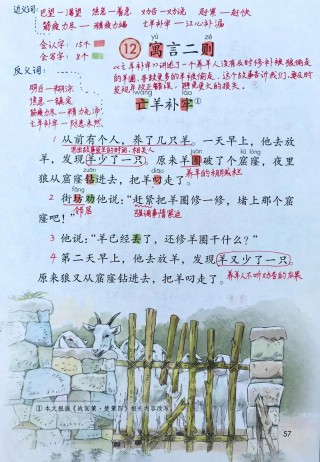 近义词：
巴望－渴望 焦急－着急 劝告－劝说 赶紧－赶快
筋疲力尽－精疲力竭 亡羊补牢－江心补漏
会认字：15个
会写字：8个
反义词：
焦急－镇定
筋疲力尽－精力充沛
亡羊补牢－防患未然
yù zé
12 寓言二则
《亡羊补牢》讲述了一个养羊人没有及时修补被狼偷走
的羊圈，导致更多的羊被偷走。这个故事告诉我们，要及时
发现并改正错误，避免更大的损失。
wáng láo
亡羊补牢①
1 从前有个人，养了几只羊。一天早上，他去放
juàn kū lóng
羊，发现羊少了一只。原来羊圈破了个窟窿，夜里
zuān diāo 养羊的羊圈破烂
狼从窟窿钻进去，把羊叼走了。
2 街坊劝他说：“赶紧把羊圈修一修，堵上那个窟
邻居 强调事情紧迫
窿吧！”
3 他说：“羊已经丢了，还修羊圈干什么？”
4 第二天早上，他去放羊，发现羊又少了一只。
养羊人不听劝告的后果
原来狼又从窟窿钻进去，把羊叼走了。
① 本文根据《战国策·楚策四》相关内容改写。
57